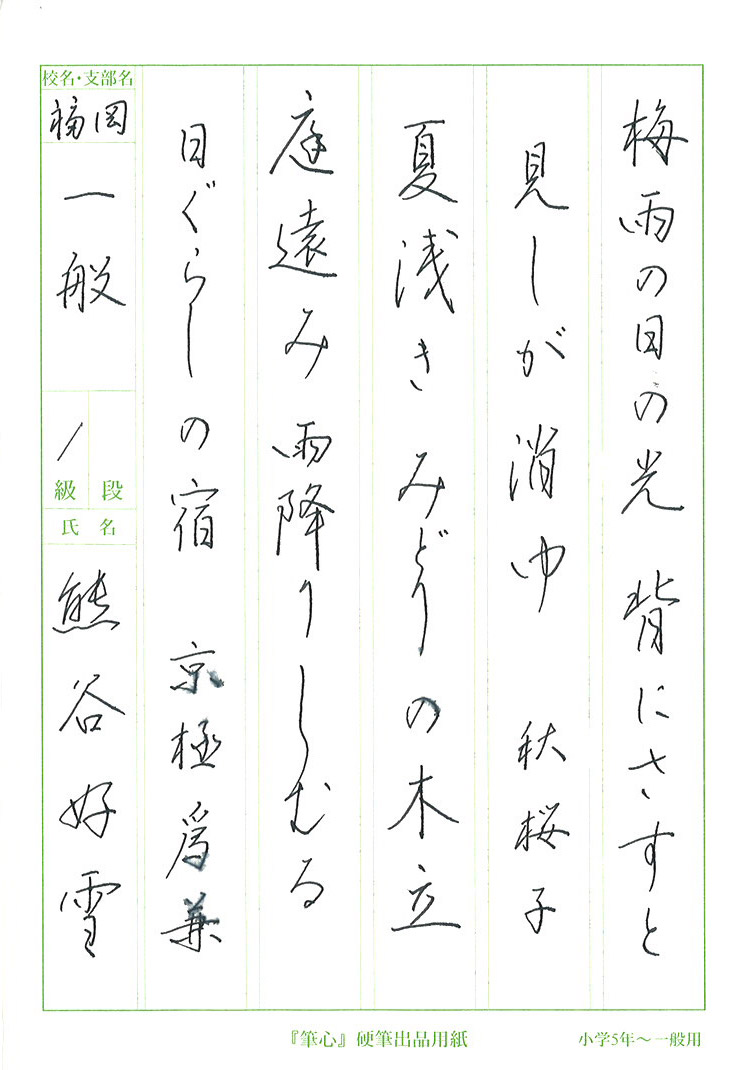 梅雨の日の光 背にさすと
見しが消ゆ 秋桜子
夏浅きみどりの木立
庭遠み雨降りしむる
日ぐらしの宿 京極為兼
校名・支部名
福岡
一般
1
級 段
氏名
熊谷好雪
『筆心』硬筆出品用紙
小学5年～一般用